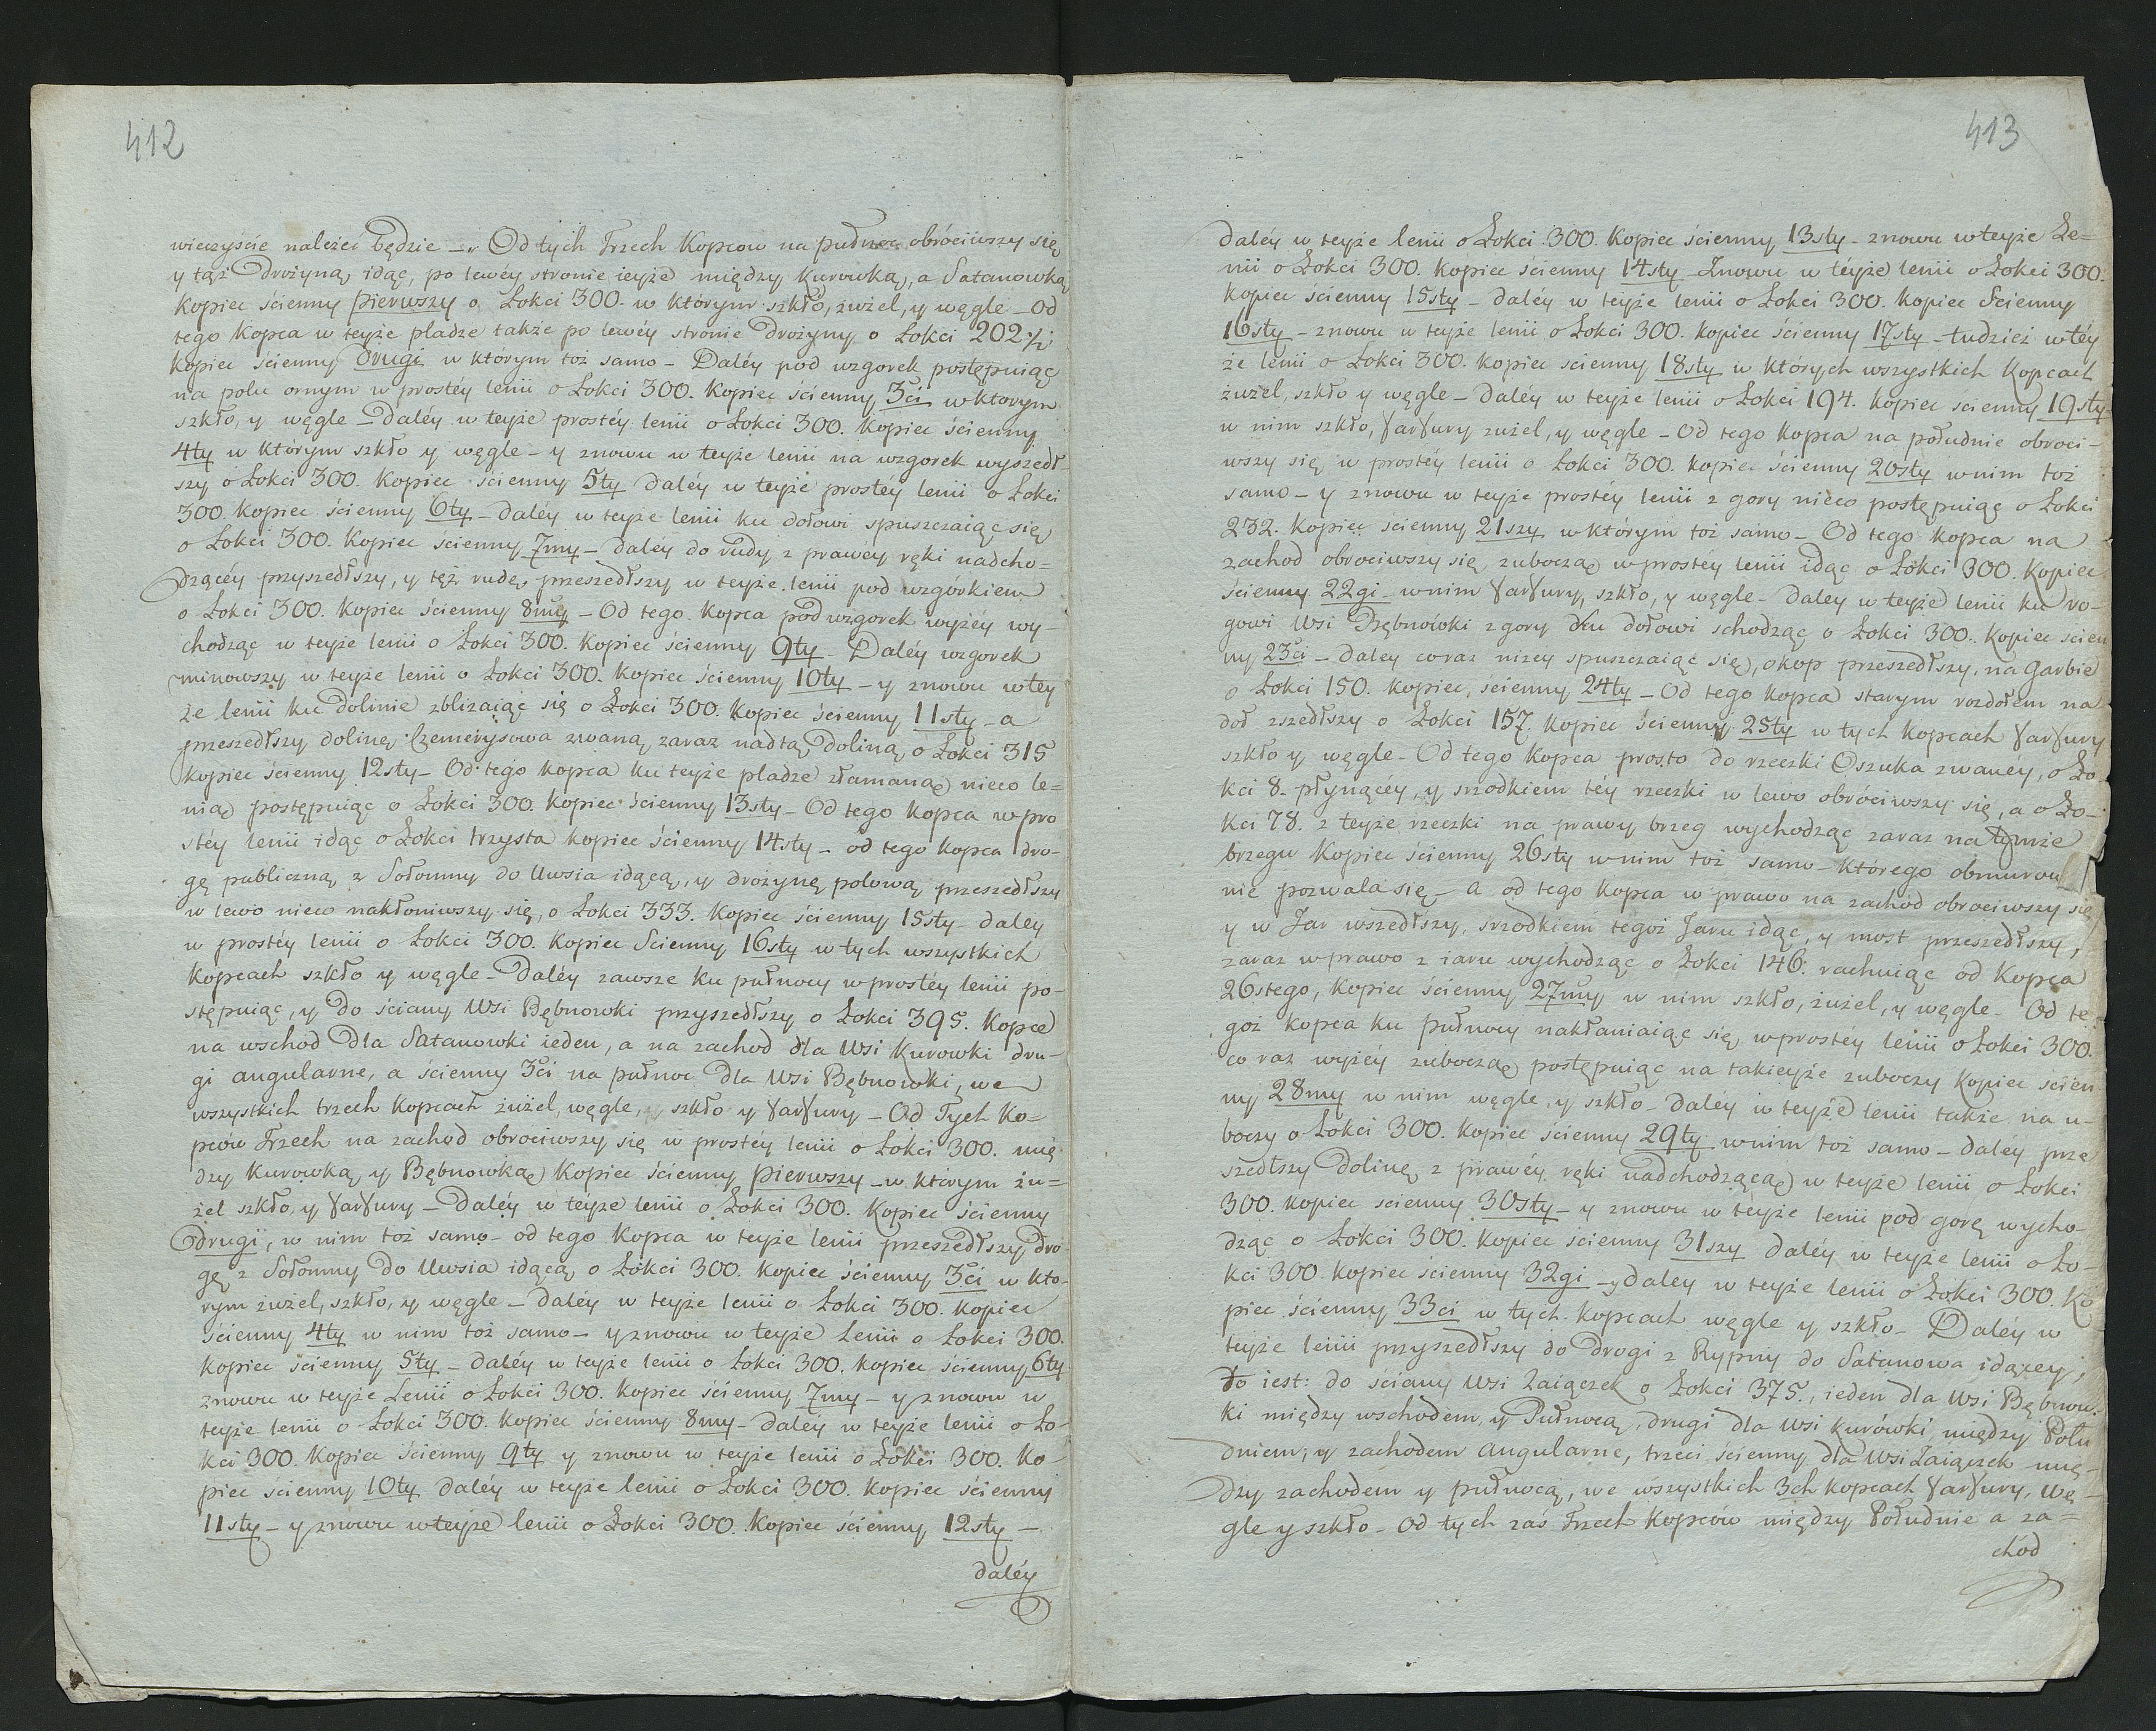 412
wieczyście należeć będzie – Od tych Trzech Kopcow na pułnoc obróciwszy się
y tąż Drożyną idąc, po lewéy stronie ieyże między Kurowką, a Satanowką
Kopiec ścienny pierwszy o Łokci 300. w którym szkło, żużel, y węgle – Od
tego Kopca w teyże pladze także po lewéy stronie Drożyny o Łokci 202½
Kopiec ścienny Drugi w którym toż samo – Daléy pod wzgorek postępuiąc
na polu ornym w prostéy lenii o Łokci 300. Kopiec ścienny 3ci w ktorym
szkło, y węgle – Daléy w teyże prostéy lenii o Łokci 300. Kopiec ścienny
4ty w którym szkło y węgle – y znowu w teyże lenii na wzgorek wyszedł-
szy o Łokci 300. Kopiec ścienny 5ty Daléy w teyże prostéy lenii o Łokci
300. Kopiec ścienny 6ty – Daléy w teyże lenii ku dołowi spuszczaiąc się
o Łokci 300. Kopiec ścienny 7my – Daléy do rudy z prawéy ręki nadcho=
dzącéy przyszedłszy, y tęż rudę przeszedłszy w teyże lenii pod wzgórkiem
o Łokci 300. Kopiec ścienny 8my – Od tego Kopca pod wzgorek wyżéy wy-
chodząc w teyże lenii o Łokci 300. Kopiec ścienny 9ty – Daléy wzgorek
minowszy w teyże lenii o Łokci 300. Kopiec ścienny 10ty – y znowu w tey
że lenii ku Dolinie zbliżaiąc się o Łokci 300. Kopiec ścienny 11sty – a
przeszedłszy dolinę Czemerysowa zwaną zaraz nad tą Doliną o Łokci 315
kopiec ścienny 12sty – Od tego kopca ku teyże pladze złamaną nieco le=
nią postępuiąc o Łokci 300. Kopiec ścienny 13sty – Od tego Kopca w pro
stéy lenii idąc o Łokci trzysta kopiec ścienny 14sty – od tego kopca dro-
gę publiczną z Sołomny do Uwsia idącą, y drożynę polową przeszedłszy
w lewo nieco nakłoniwszy się, o Łokci 333. Kopiec ścienny 15sty – daléy
w prostéy lenii o Łokci 300. Kopiec Ścienny 16sty w tych wszystkich
Kopcach szkło y węgle – Daléy zawsze ku pułnocy w prostéy lenii po-
stępuiąc, y Do ściany Wsi Bębnowki przyszedłszy o Łokci 395. Kopce
na wschod Dla Satanowki ieden, a na zachod dla Wsi Kurowki dru-
gi angularne, a ścienny 3ci na pułnoc Dla Wsi Bębnowki, we
wszystkich trzech Kopcach żużel, węgle, szkło y farfury – Od Tych Ko=
pców Trzech na zachod obrociwszy się w prostéy lenii o Łokci 300. mię
dzy Kurowką y Bębnowką Kopiec ścienny pierwszy – w którym żu=
żel szkło, y farfury – Daléy w téyże lenii o Łokci 300. Kopiec ścienny
Drugi, w nim toż samo – od tego Kopca w teyże lenii przeszedłszy dro
gę z Sołomny Do Uwsia idącą o Łokci 300. kopiec ścienny 3ci w kto-
rym żużel, szkło, y węgle – Daléy w teyże lenii o Łokci 300. kopiec
ścienny 4ty w nim toż samo – y znowu w teyże Lenii o Łokci 300.
kopiec ścienny 5ty – daléy w teyże lenii o Łokci 300. kopiec ścienny 6ty
znowu w teyże Lenii o Łokci 300. Kopiec ścienny 7my – y znowu w
teyże lenii o Łokci 300. Kopiec ścienny 8my – Daléy w teyże lenii o Ło-
kci 300. Kopiec ścienny 9ty y znowu w teyże lenii o Łokci 300. Ko-
piec ścienny 10ty Daléy w teyże lenii o Łokci 300. Kopiec ścienny
11sty – y znowu w teyże lenii o Łokci 300. Kopiec ścienny 12sty –
daléy
413
daléy w teyże lenii o Łokci 300. Kopiec ścienny 13sty – znowu w teyże Le=
nii o Łokci 300. Kopiec ścienny 14sty Znowu w téyże lenii o Łokci 300.
Kopiec ścienny 15sty – daléy w teyże lenii o Łokci 300. Kopiec Scienny
16sty – znowu w teyże lenii o Łokci 300. Kopiec ścienny 17sty – tudzież w téy
że lenii o Łokci 300. Kopiec scienny 18sty w których wszystkich Kopcach
żużel, szkło y węgle – Daléy w teyże lenii o Łokci 194. Kopiec scienny 19sty
w nim szkło, farfury żużel, y węgle – Od tego kopca na południe obroci-
wszy się w prostéy lenii o Łokci 300. kopiec ścienny 20sty w nim toż
samo – y znowu w teyże prostéy lenii z gory nieco postępuiąc o Łokci
232. Kopiec ścienny 21szy w którym toż samo – Od tego kopca na
zachod obrociwszy się zuboczą w prostéy lenii idąc o Łokci 300. Kopiec
ścienny 22gi – w nim farfury, szkło, y węgle – Daley w teyże lenii ku ro-
gowi Wsi Bębnowki z gory ku dołowi schodząc o Łokci 300. Kopiec scien
ny 23ci – Daley coraz niżey spuszczaiąc się, okop przeszedłszy, na garbie
o Łokci 150. Kopiec, ścienny 24ty – Od tego kopca starym rozdołem na
doł zszedłszy o Łokci 157. Kopiec ścienny 25ty w tych Kopcach farfury
szkło y węgle – Od tego Kopca prosto do rzeczki Oszuka zwanéy, o Ło-
kci 8. płynącéy, y srzodkiem téy rzeczki w lewo obróciwszy się, a o Ło-
kci 78. z teyże rzeczki na prawy brzeg wychodząc zaraz na tymże
brzegu Kopiec ścienny 26sty w nim toż samo – którego obmurow
nie pozwala się – a od tego kopca w prawo na zachód obrociwszy się
y w Jar wszedłszy, srzodkiem tegoż Jaru idąc, y most przeszedłszy,
zaraz w prawo z iaru wychodząc o Łokci 146. rachuiąc od Kopca
26stego, Kopiec ścienny 27my w nim szkło, żużel, y węgle – Od te
goż kopca ku pułnocy nakłaniaiąc się, w prostéy lenii o Łokci 300.
co raz wyżéy zuboczą postępuiąc na takieyże zuboczy Kopiec ścien
ny 28my w nim węgle, y szkło – daléy w teyże lenii także na u-
boczy o Łokci 300. Kopiec ścienny 29ty w nim toż samo – daléy prze
szedłszy Dolinę z prawéy ręki nadchodzącą w teyże lenii o Łokci
300. kopiec scienny 30sty – y znowu w teyże lenii pod gorę wycho-
dząc o Łokci 300. Kopiec scienny 31szy daléy w teyże lenii o Ło-
kci 300. Kopiec ścienny 32gi – y Daley w teyże lenii o Łokci 300. Ko
piec ścienny 33ci w tych Kopcach węgle y szkło – Daléy w
teyże lenii przyszedłszy do drogi z Rypny do Satanowa idącey,
to iest: do ściany Wsi Zaiączek o Łokci 375., ieden dla Wsi Bębnow
ki między wschodem, y Pułnocą, drugi dla Wsi Kurówki, między Połu
dniem, y zachodem angularne, trzeci ścienny dla Wsi Zaiączek mię-
dzy zachodem y pułnocą, we wszystkich 3ch kopcach farfury, wę-
gle y szkło – Od tych zaś Trzech Kopców między Południe a za=
chód